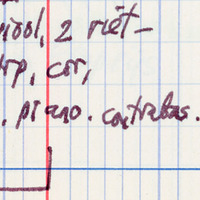 viool, 2 riet-
trp, cor,
. piano. contrabas.